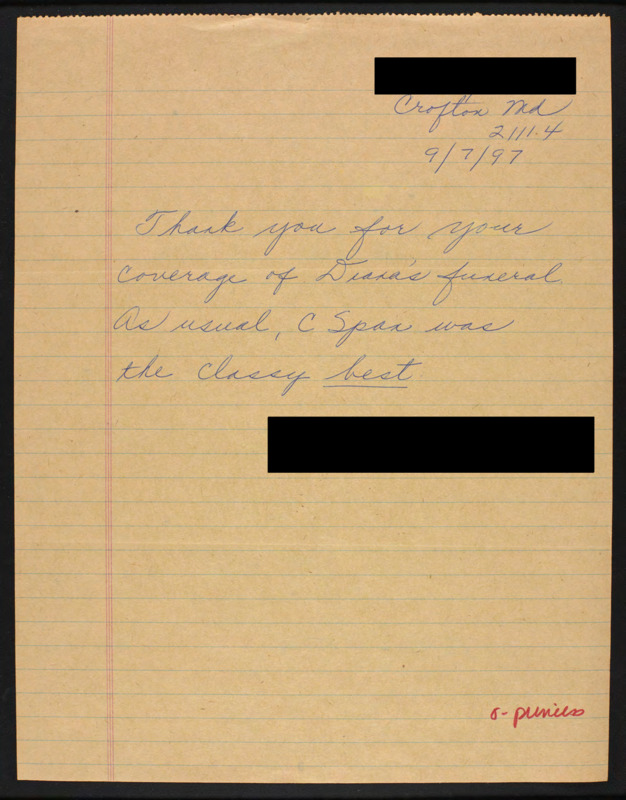 Crofton Md
21114
9/7/97
Thank you for your
coverage of Diana's funeral.
As usual, C Span was
the classy best